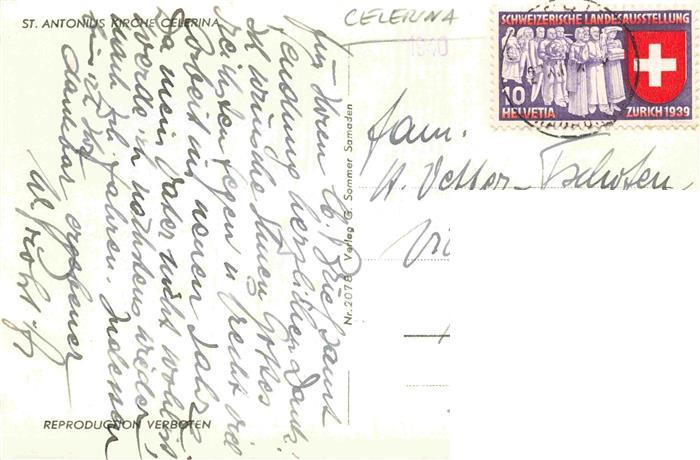 ST. ANTONIUS KIRCHE CELERINA
CELERINA
1940
SCHWEIZERISCHE LANDESAUSSTELLUNG
10
HELVETIA
ZURICH 1939
Fam.
A. Vetter-Tschofen,
Für Ihren lb. Brief samt
Sendung herzlichen Dank!
Ich wünsche Ihnen Gottes
reichsten Segen u. recht viel
Arbeit im neuen Jahr.
Da mein Vater nicht wohl ist
werde ich nächstens wieder
nach fahren. Indessen
dankbar ergebener
Nr. 2078 Verlag G. Sommer Samaden
REPRODUCTION VERBOTEN